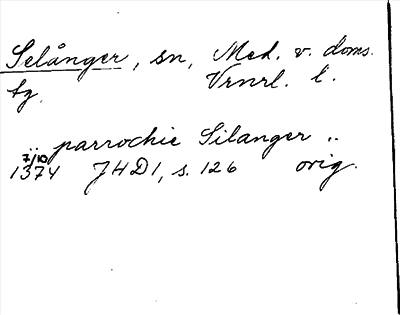 Selånger, sn, Med. v. doms.
tg. Vrnrl. l.
.. parrochie Silanger ..
7/10
1374 JHD 1, s. 126 orig.